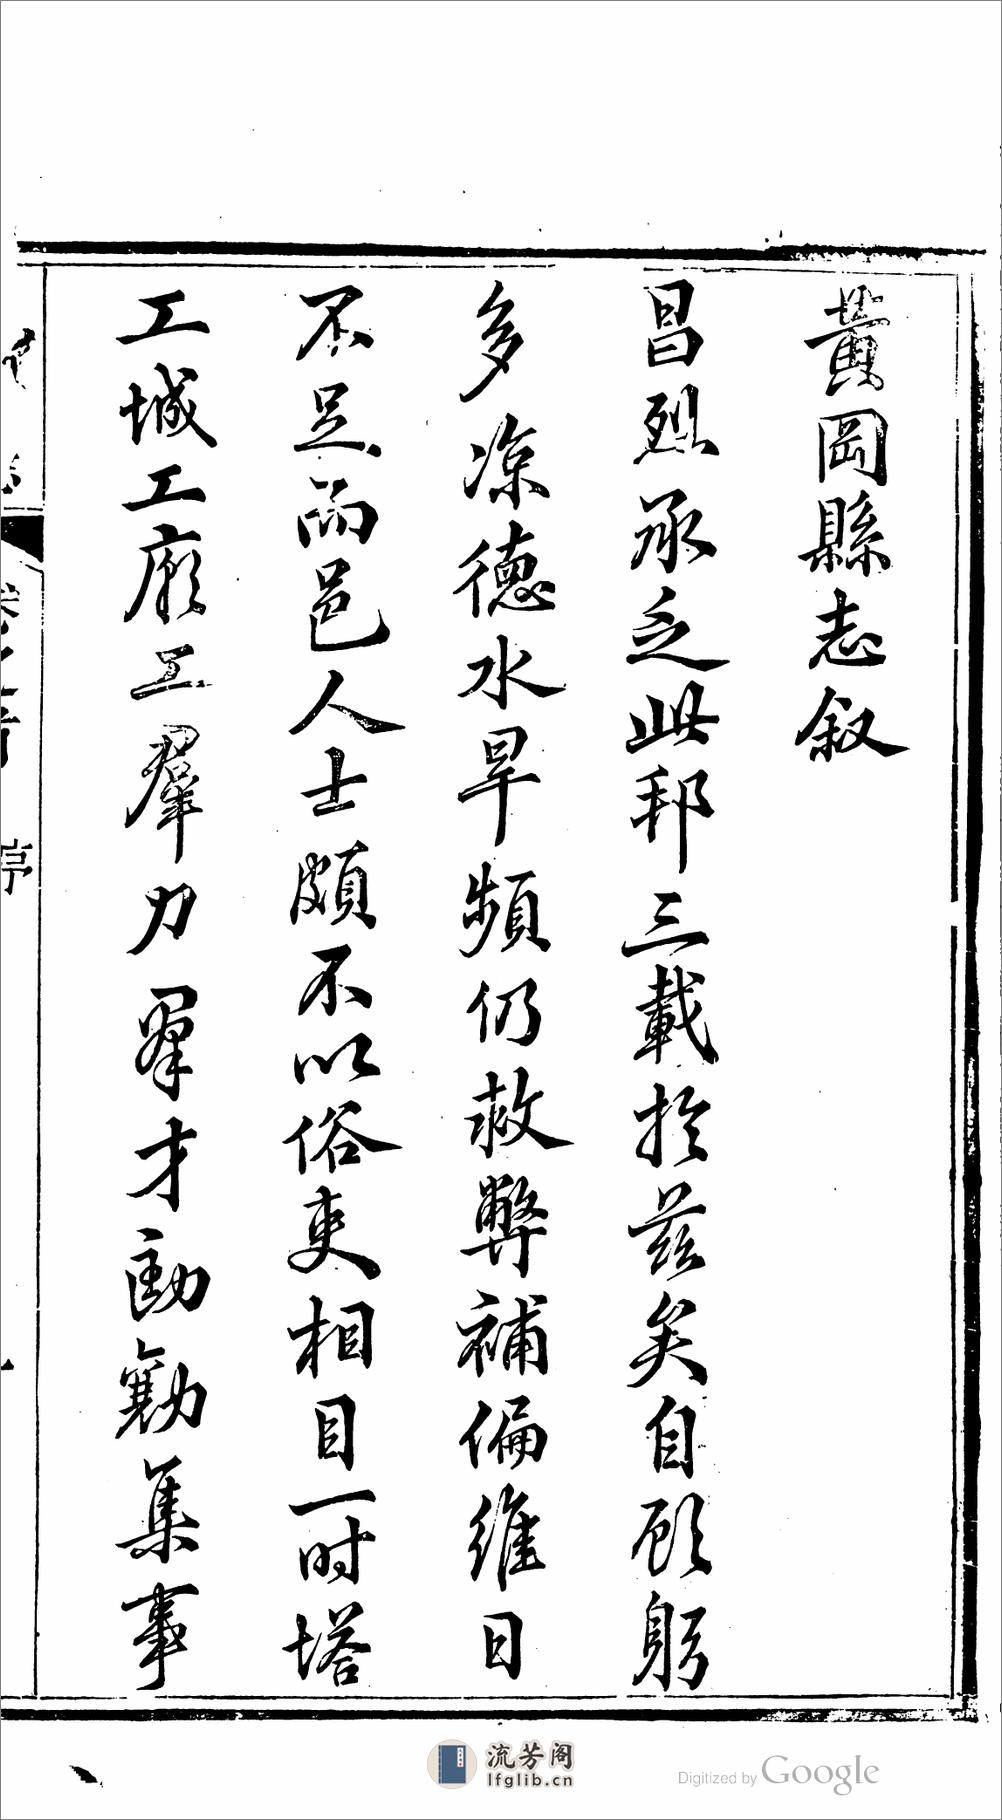 黃岡縣志叙
昌烈承乏此邦三載於茲矣自顧躬
多凉德水旱頻仍救弊補偏維日
不足而邑人士頗不以俗吏相目一时塔
工城工廟工羣力羣才勷勷集事
序
流芳阁
lfglib.cn
Digitized by Google